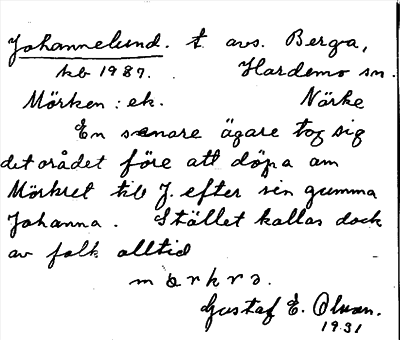 Johannelund. t. avs. Berga,
kb 1987. Hardemo sn.
Mörken: ek. Närke
En senare ägare tog sig
det orådet före att döpa om
Mörkret till J. efter sin gumma
Johanna. Stället kallas dock
av folk alltid
mörkrə.
Gustaf E. Olsson.
1931